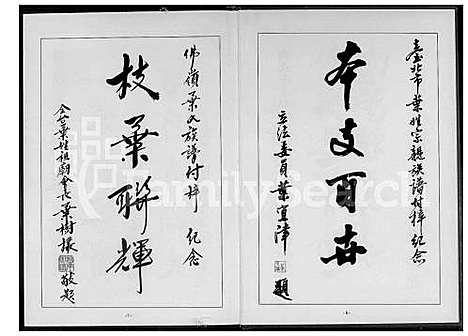 臺北市葉姓宗親族譜付梓紀念
本支百世
立法委員葉宜津
題
佛嶺葉氏族譜付梓 紀念
枝葉聯輝
葉姓祖廟會長葉樹
敬題
FamilySearch